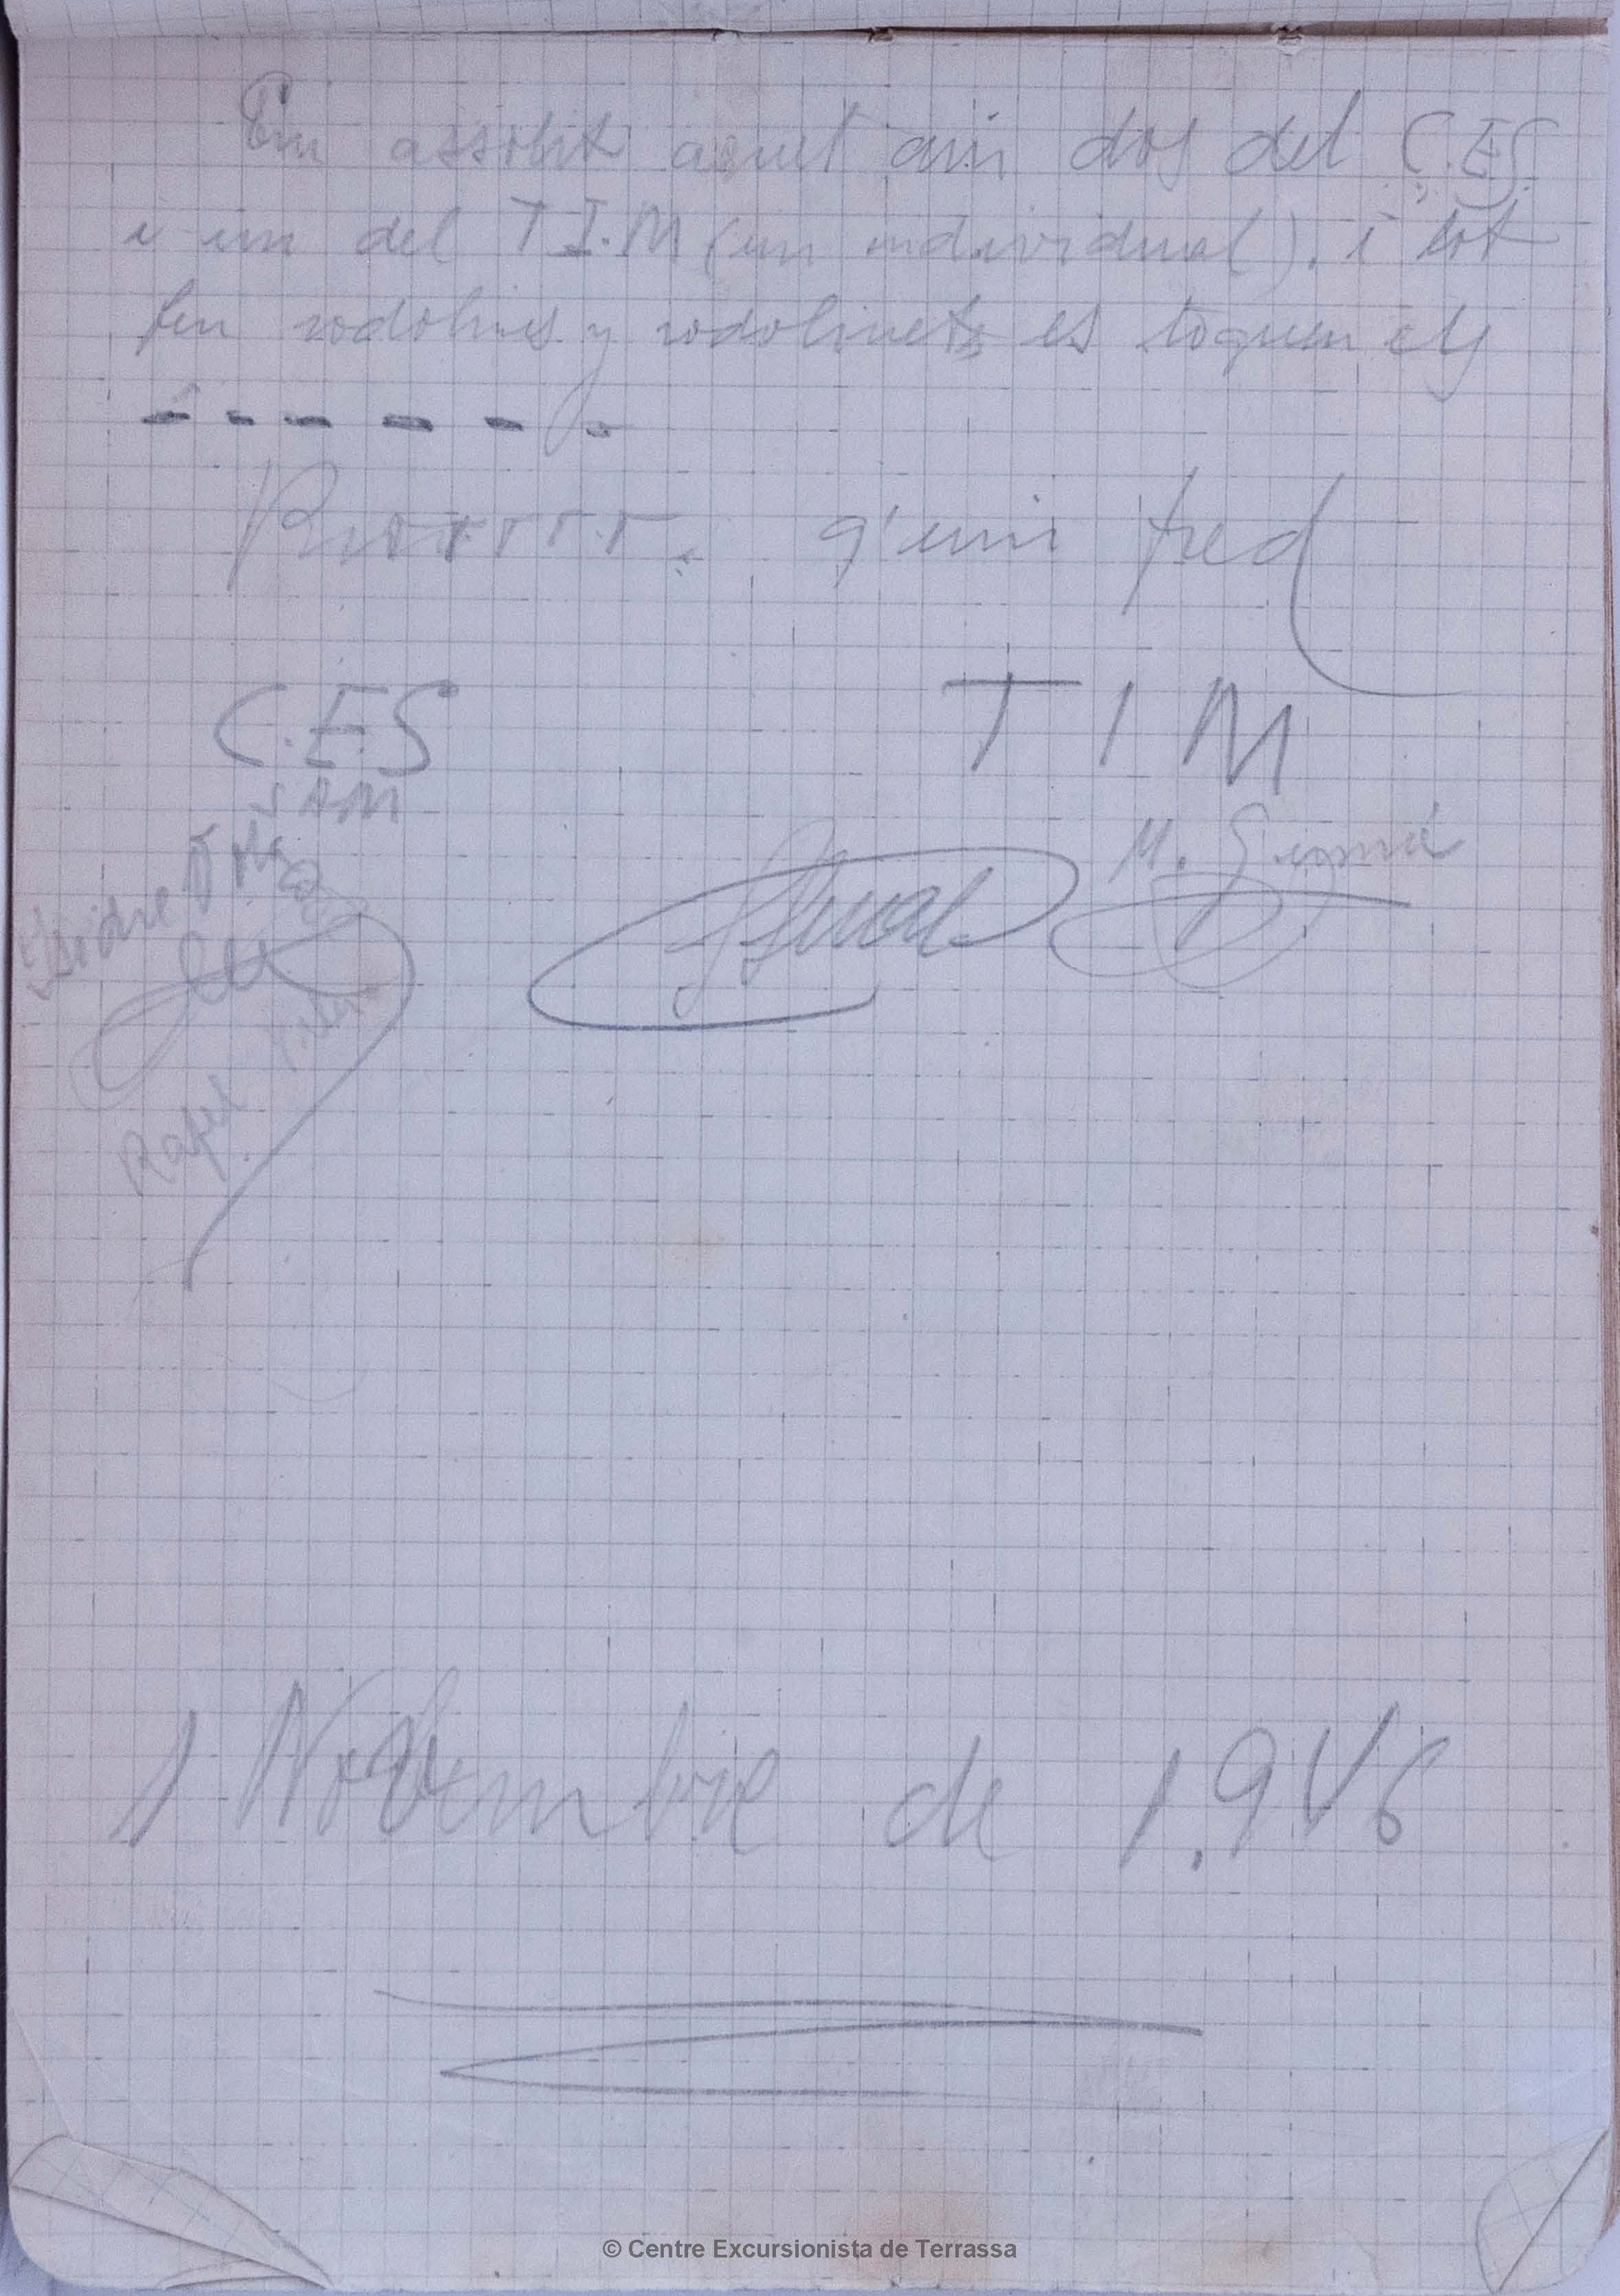 Em assolit aquet cim dos del C.E.S.
i un del T.I.M (un individual). i tot
fen rodolins y rodolinets es toquem els
- - - - - -
Rurrrrrr. q'unin fred
C.E.S
SAM
T I M
M. Gimmé
Isidre
Rafel
1 Novembre de 1.946
© Centre Excursionista de Terrassa